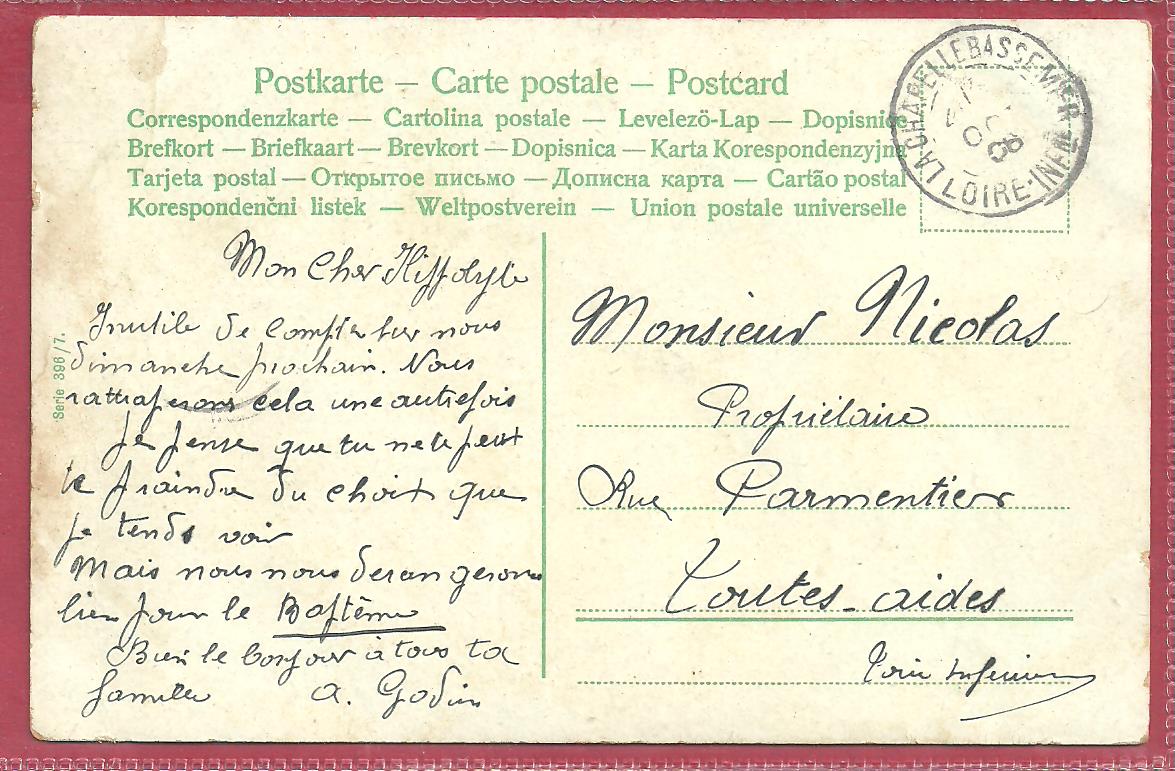 Postkarte — Carte postale — Postcard
Correspondenzkarte — Cartolina postale — Levelezö-Lap — Dopisnice
Brefkort — Briefkaart — Brevkort — Dopisnica — Karta Korespondenzyjna
Tarjeta postal — Открытое письмо — Дописна карта — Cartão postal
Korespondenčni listek — Weltpostverein — Union postale universelle
LA CHAPELLE BASSE MER
LOIRE-INFRE
Serie 396/7.
Mon Cher Hippolyte
Inutile de compter sur nous
dimanche prochain. Nous
rattraperons cela une autrefois
Je pense que tu ne te peut
te plaindre du choix que
je tends voir
Mais nous nous derangerons
bien pour le Baptême
Bien le bonjour à tous ta
famille A. Godin
Monsieur Nicolas
Propriétaire
Rue Parmentier
Toutes-aides
Loire Inférieure